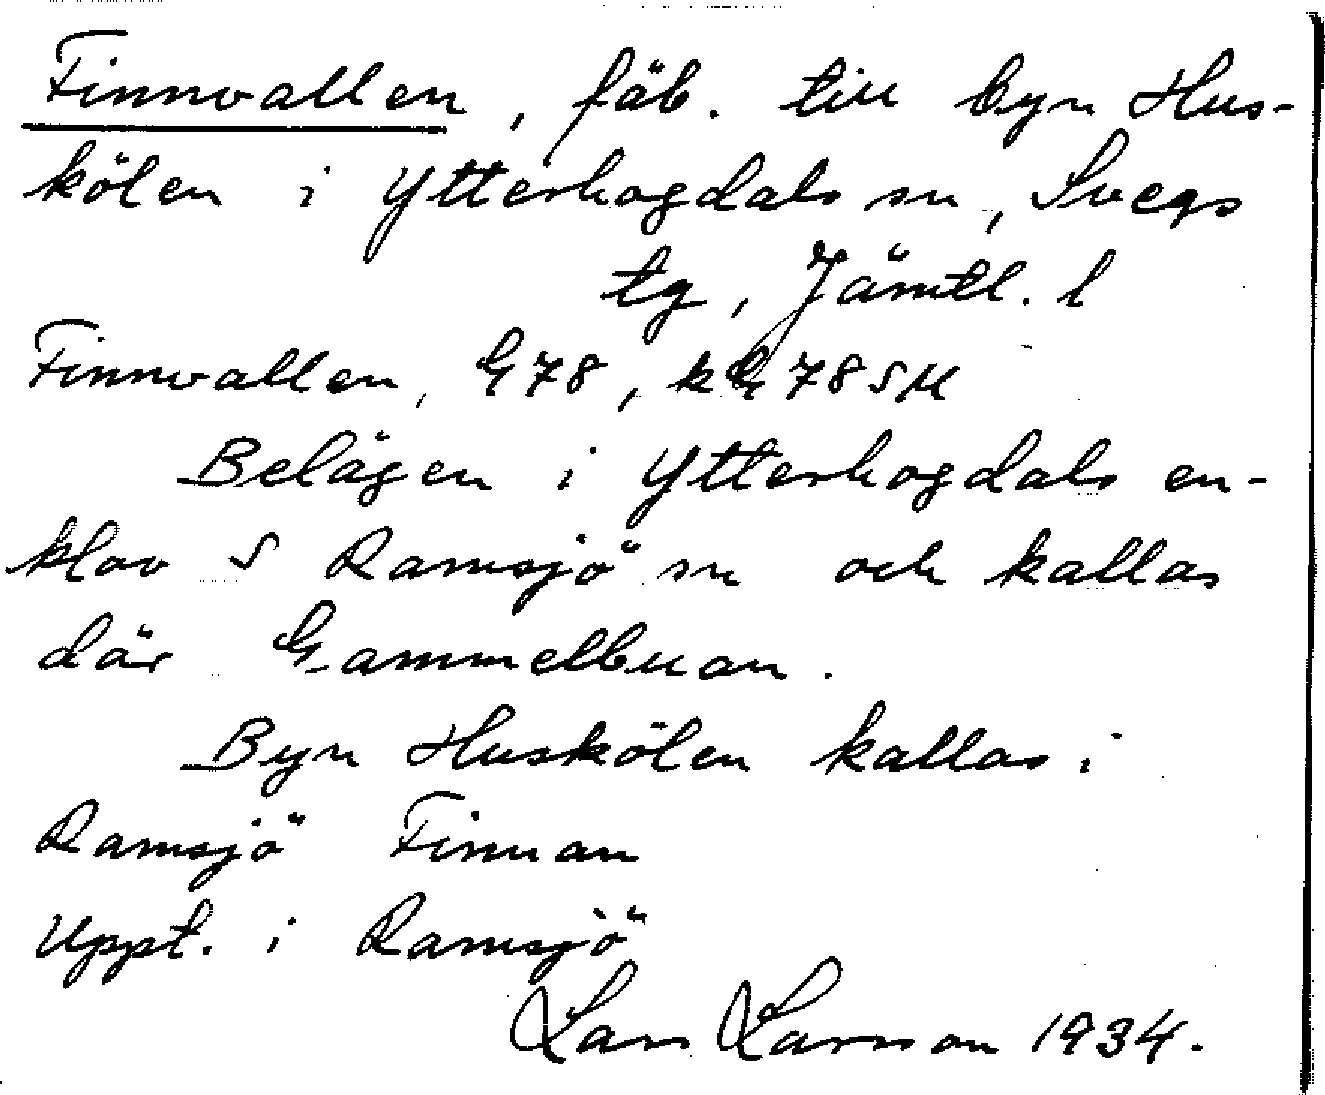 Finnvallen, fäb. till byn Hus-
kölen i Ytterhogdals sn, Svegs
tg, Jämtl. l
Finnvallen, G78, kG78SM
Belägen i Ytterhogdals en-
klav S Ramsjö sn och kallas
där Gammelbuan.
Byn Huskölen kallas i
Ramsjö Finnan
Uppt. i Ramsjö
Lars Larsson 1934.